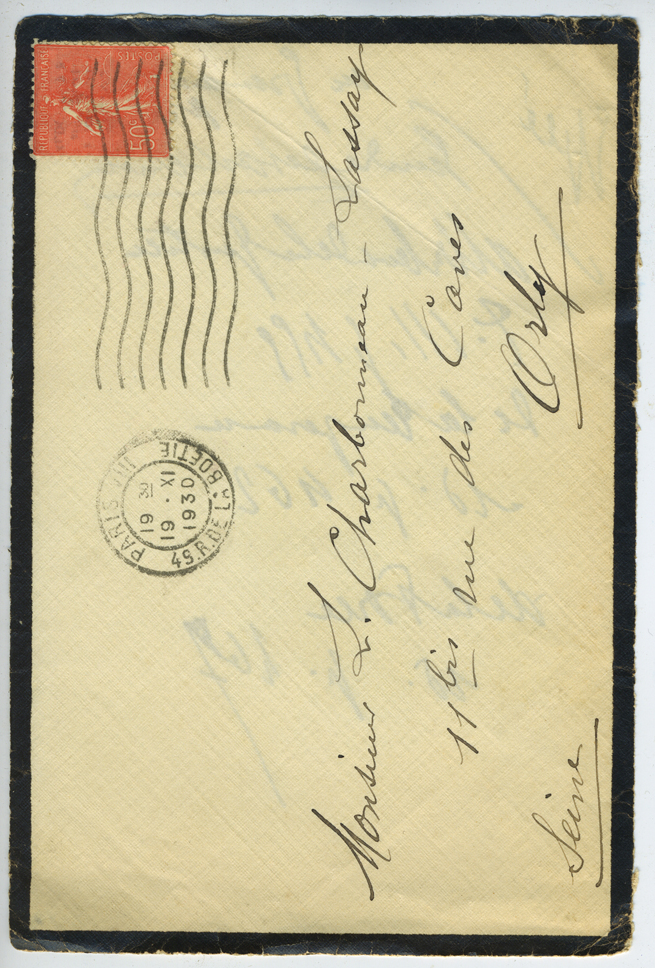 RÉPUBLIQUE FRANÇAISE
POSTES
50c
PARIS VIII
45.R.DE LA BOETIE
19 30
19 · XI
1930
Monsieur L. Charbonneau-Lassay
11 bis rue des Caves
Orly
Seine